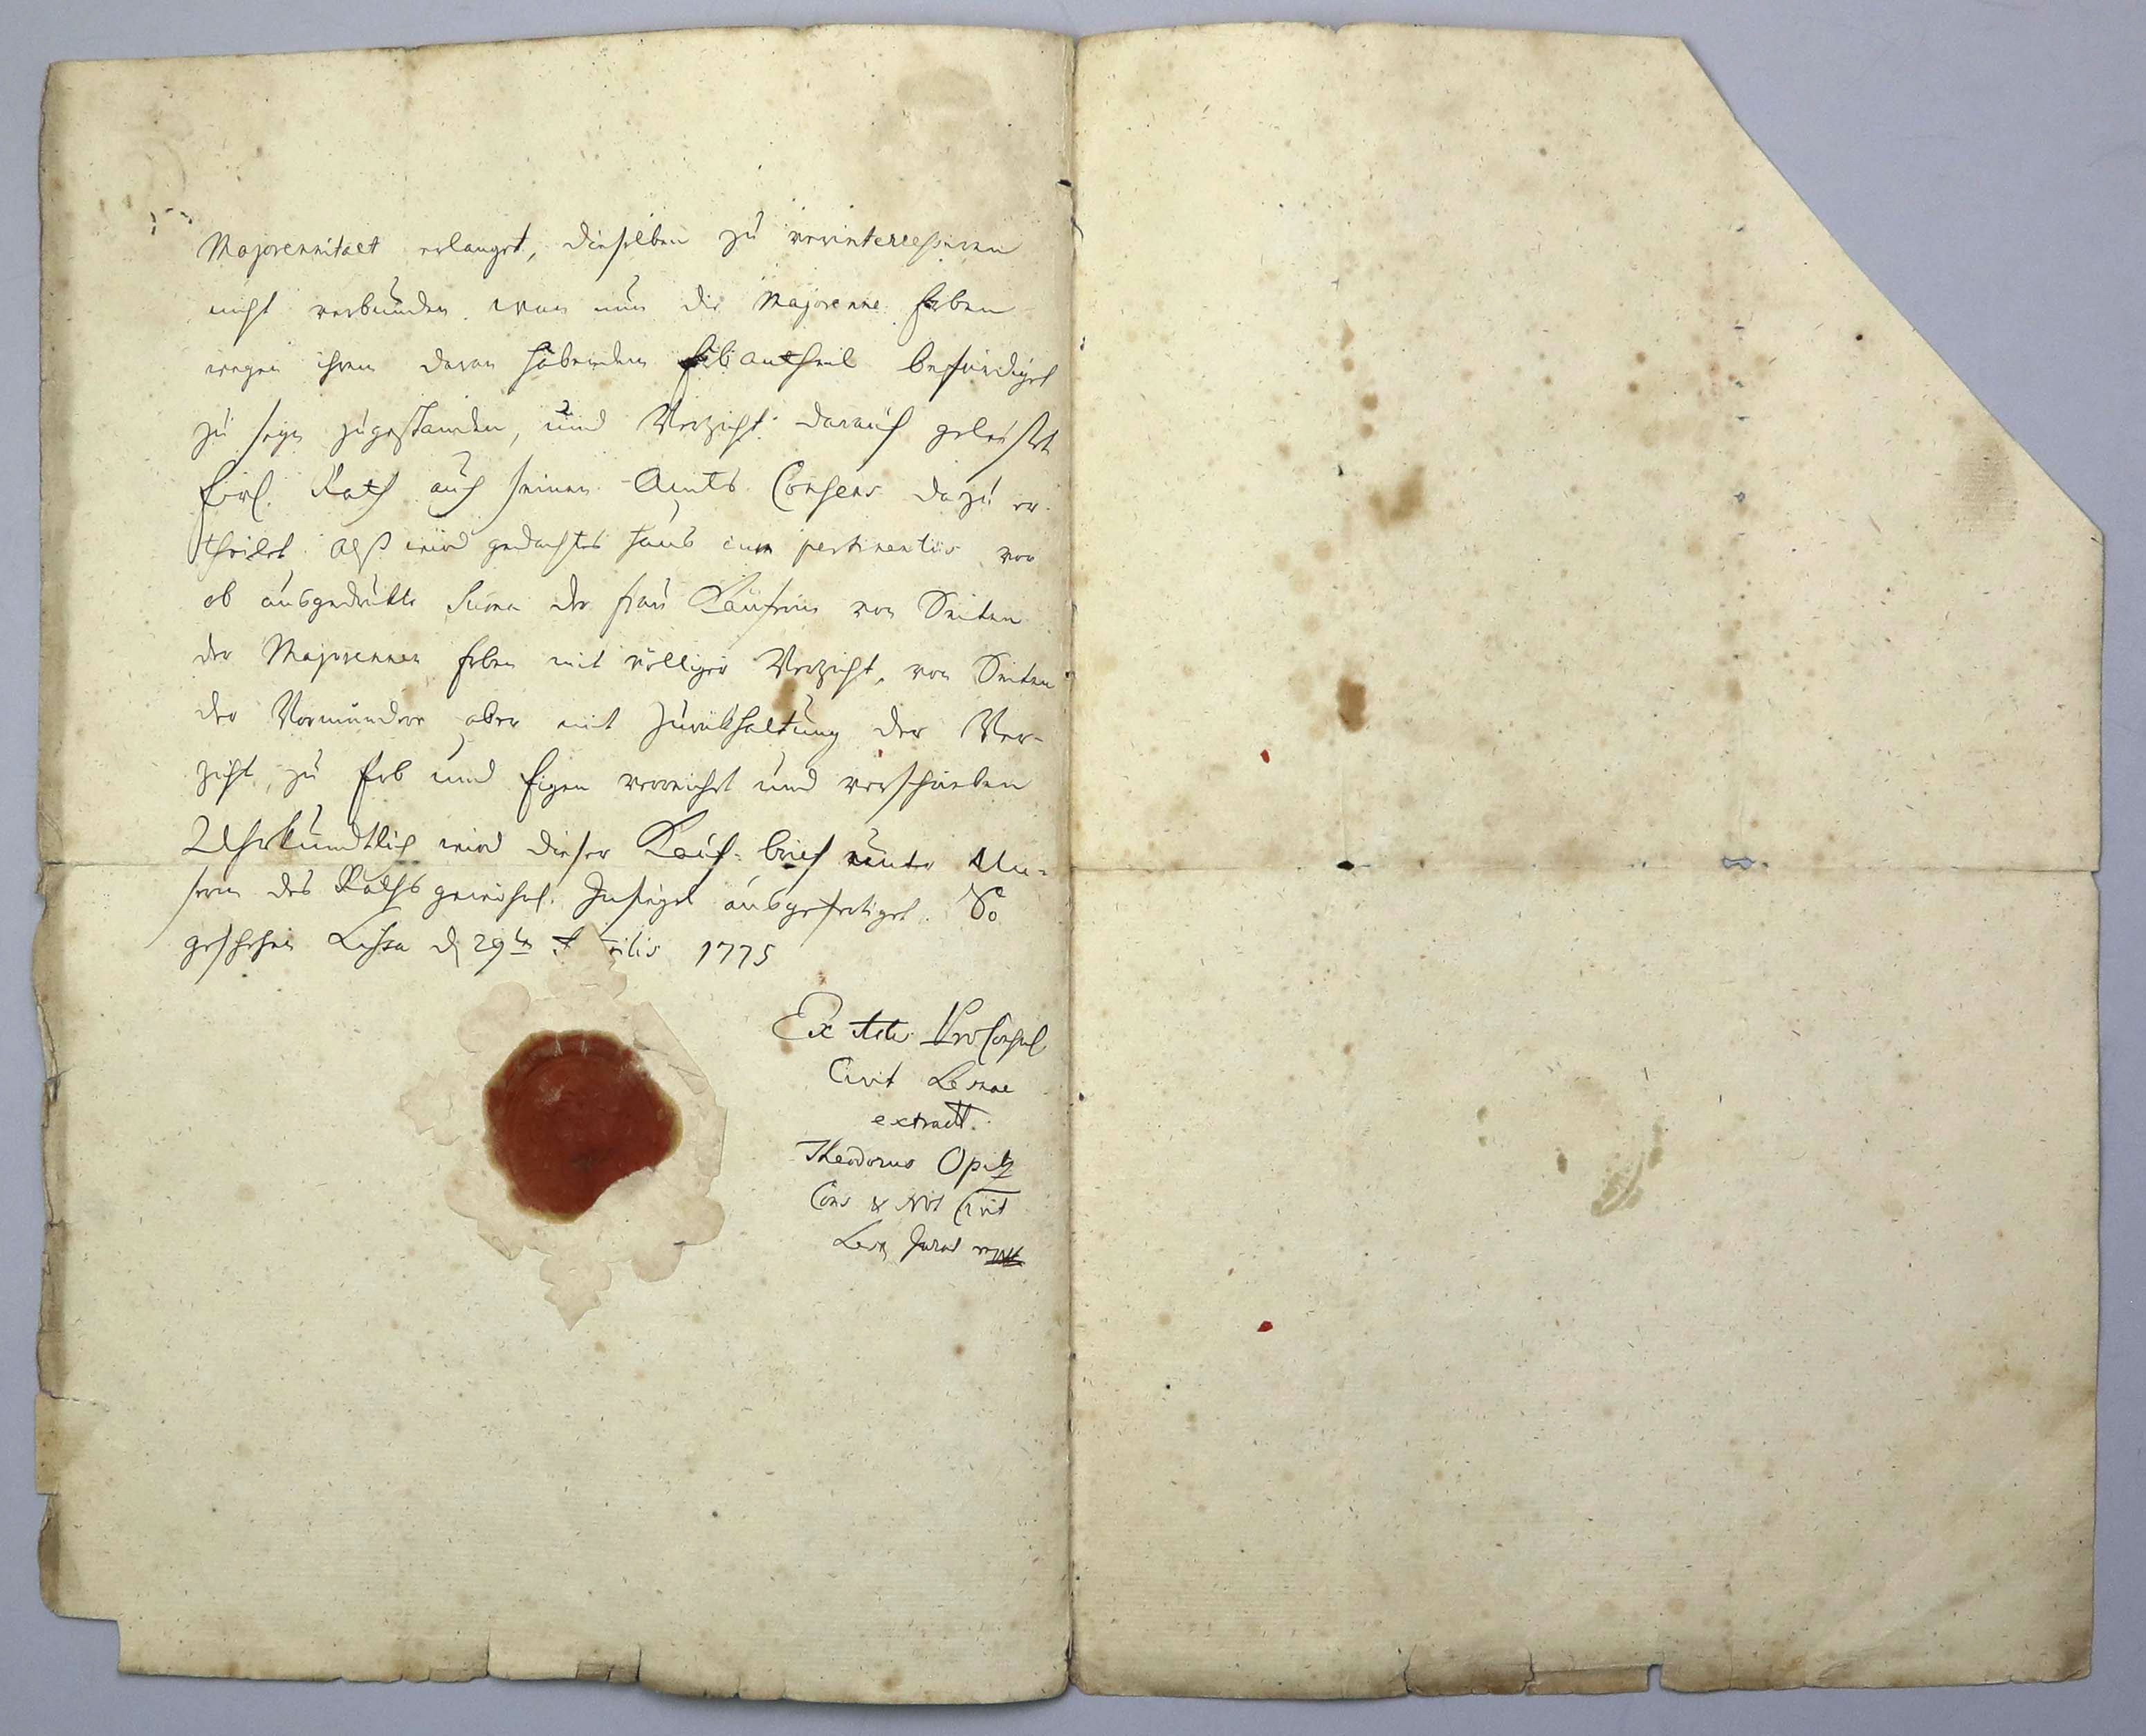 Majorennitaet erlanget, dieselben zu verinteressiren
nicht verbunden. Wan nun die Majorenne Erben
wegen ihren daran habenden Erbantheil befriediget
zu seyn zugestanden, und Verzicht darauf geleistet
Rath auch seinen Amts Consens dazu er-
theilet. Alß wird gedachtes Haus cum pertinentiis vor
ob ausgedrukte Suma der Frau Käuferin von Seiten
der Majorennen Erben mit völliger Verzicht, von Seiten
der Vormünder aber mit Zurükhaltung der Ver-
zicht, zu Erb und Eigen verreicht und verschrieben
Uhrkundtlich wird dieser Kauf-brief unter Un-
serm des Raths Insigel ausgefertiget. So
geschehen Lissa d 29ten 1775
Ex Actis Proconsul
Civit Lesnae
extract.
Theodorus Opitz
Cons & Not Civit
Lesn Jurat mpp